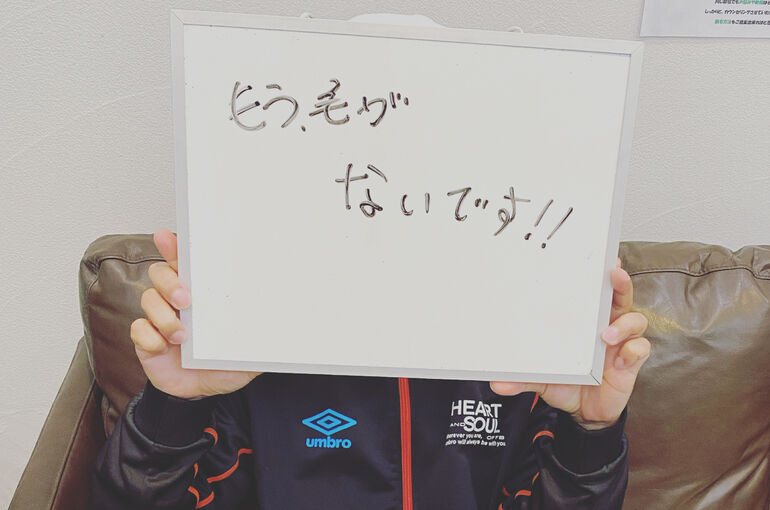 もう、毛が
ないです!!
umbro
HEART
AND SOUL
wherever you are,
umbro will always be with you.